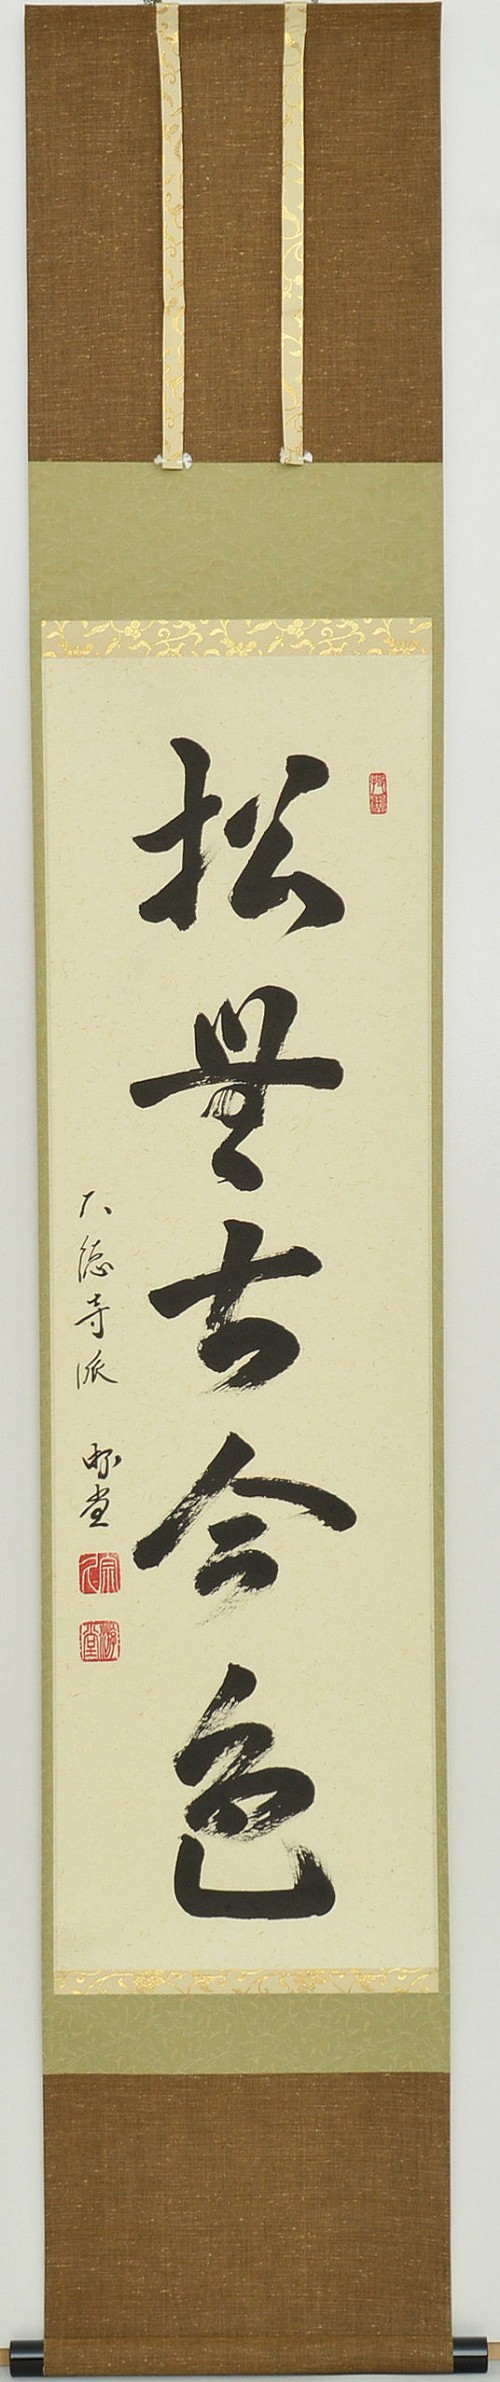 松無古今色
大徳寺派